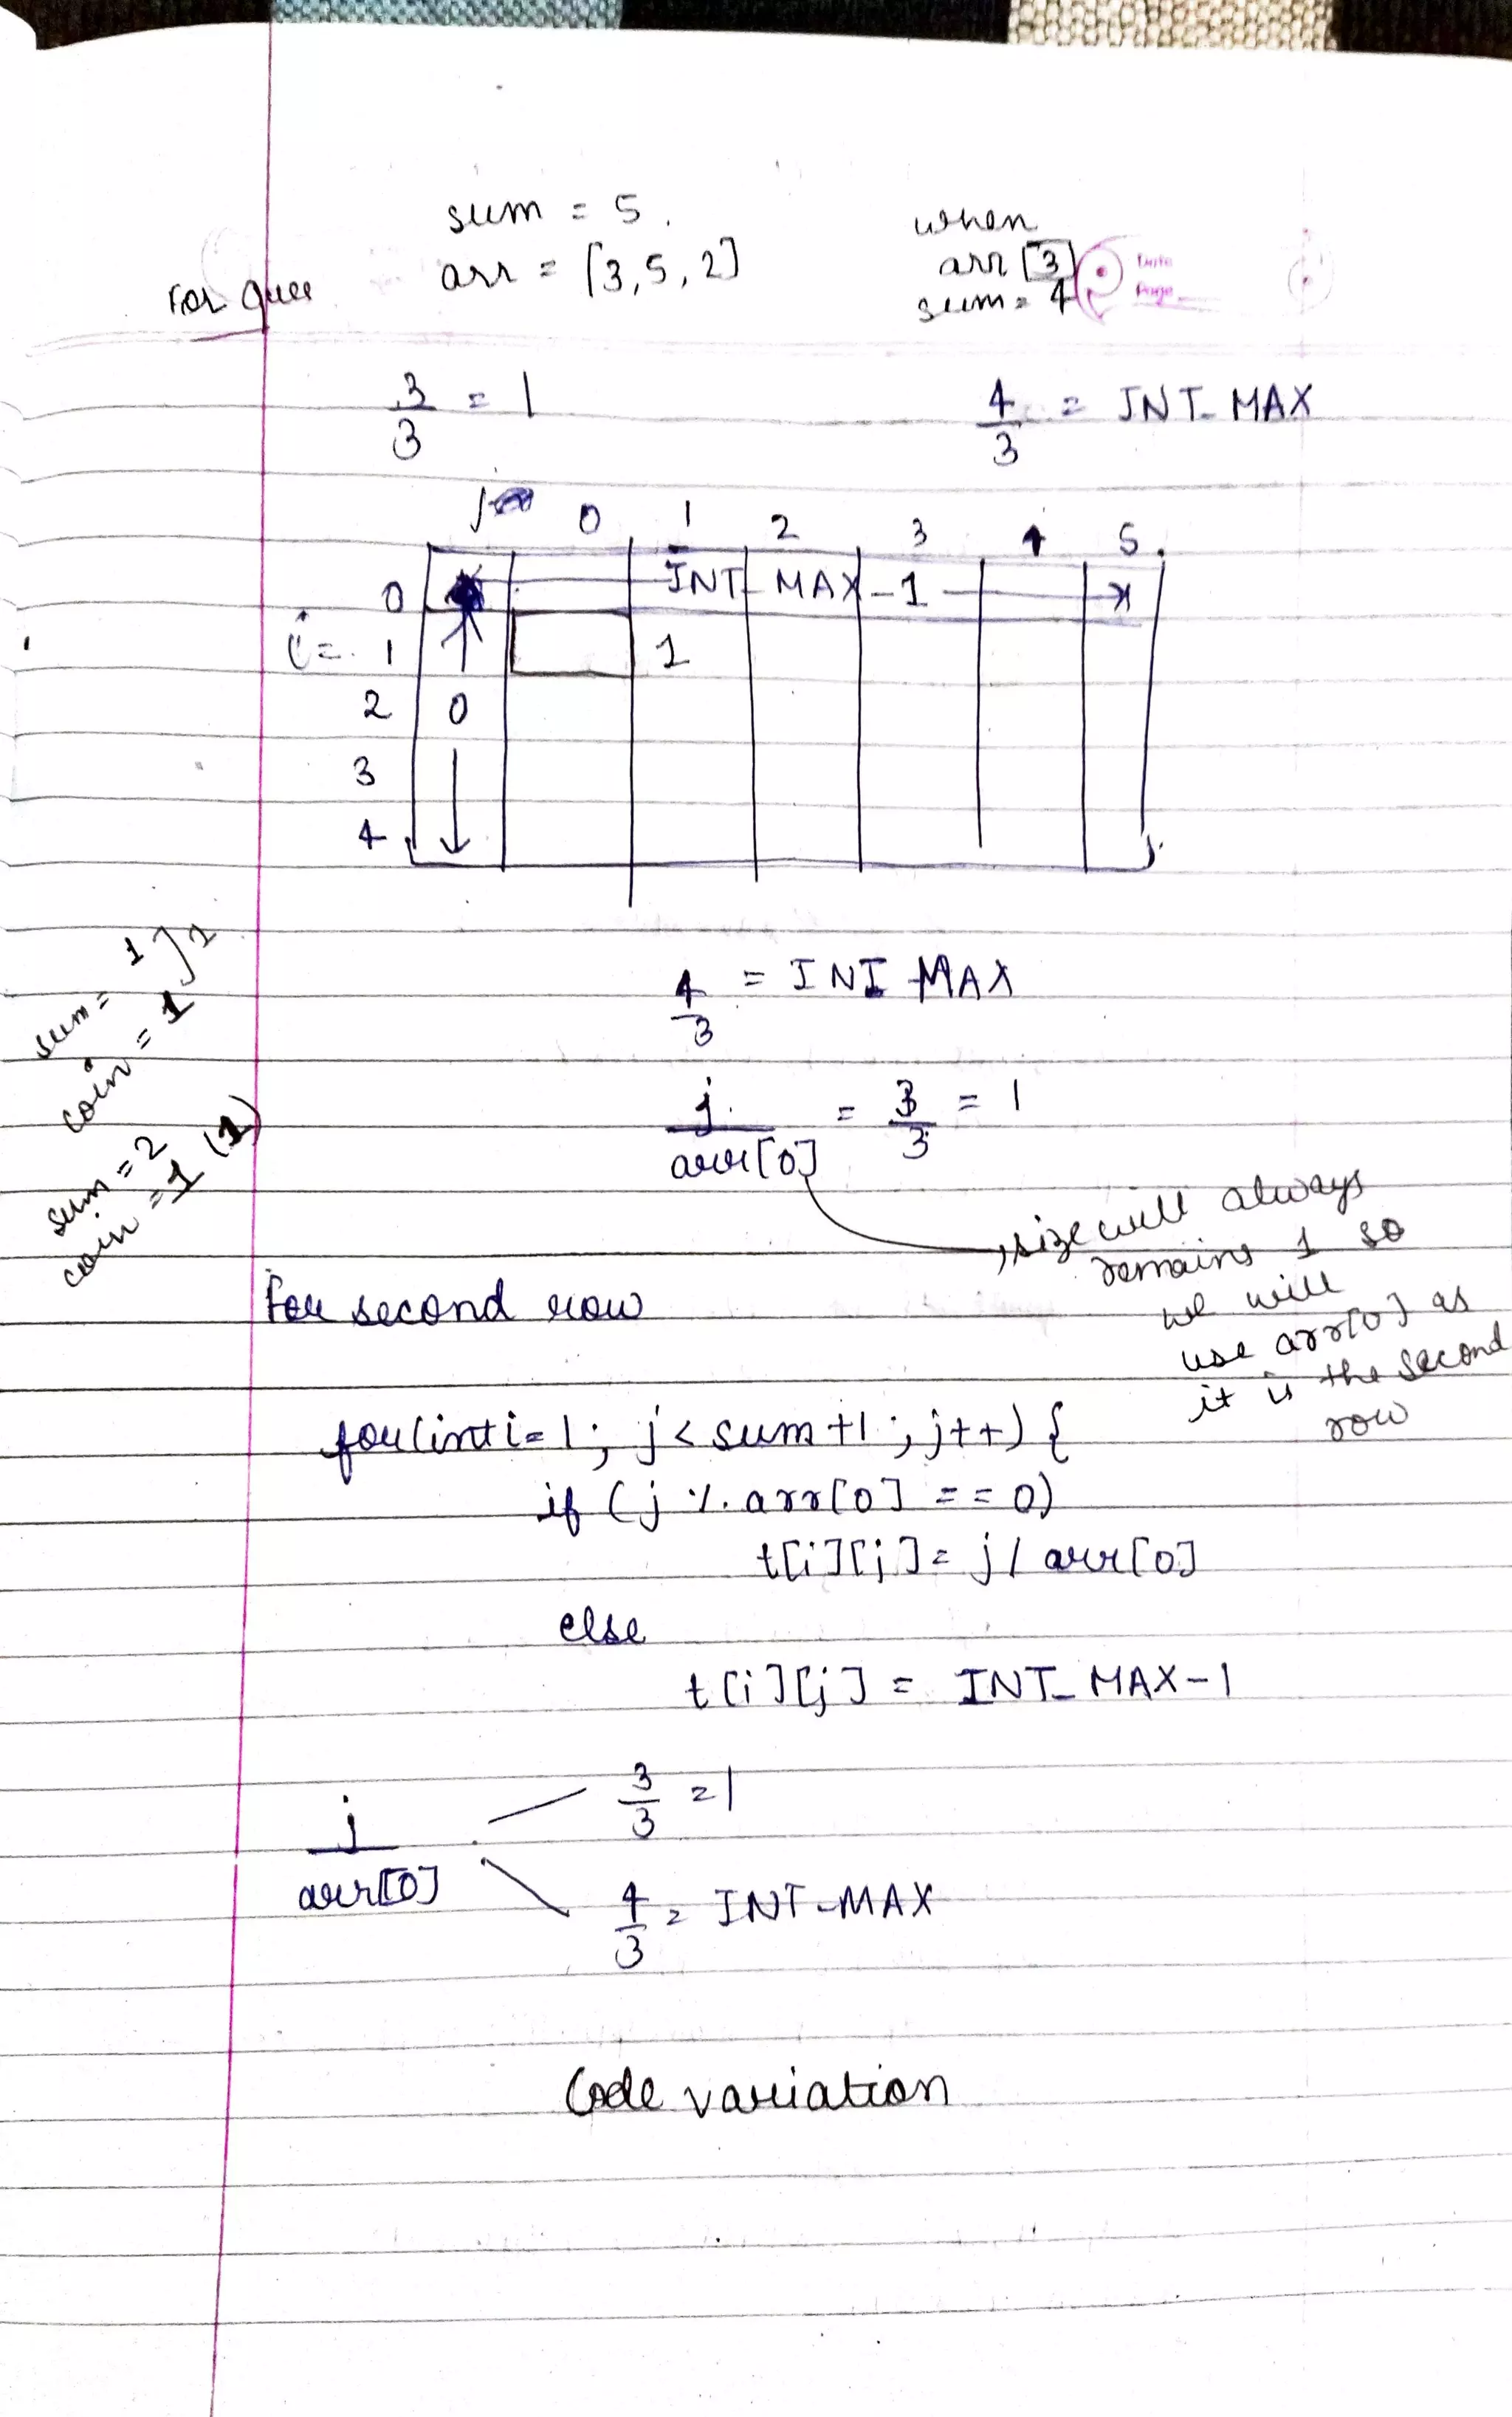 sum = 5.
arr = [3,5,2]
For Ques
when
arr [3]
sum = 4
Date
Page
3/3 = 1
4/3 = INT_MAX
j
0 1 2 3 4 5
0 INT_MAX-1
i = 1 1
2 0
3
4
sum = 1 ] 1
coin = 1
sum = 2
coin = 1 (1)
4/3 = INT MAX
j/arr[0] = 3/3 = 1
size will always
remains 1 so
we will
use arr[0] as
it is the second
row
For second row
for(int i=1; j<sum+1; j++) {
if (j % arr[0] == 0)
t[i][j] = j / arr[0]
else
t[i][j] = INT_MAX-1
j/arr[0]
3/3 = 1
4/3 = INT-MAX
Code variation